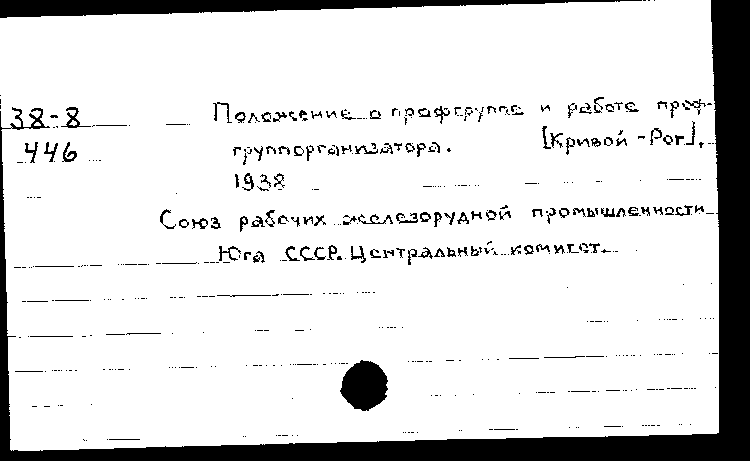 38-8 Положение о профгруппе и работе проф-
446 группорганизатора. [Кривой-Рог],
1938
Союз рабочих железорудной промышленности
Юга СССР. Центральный комитет.